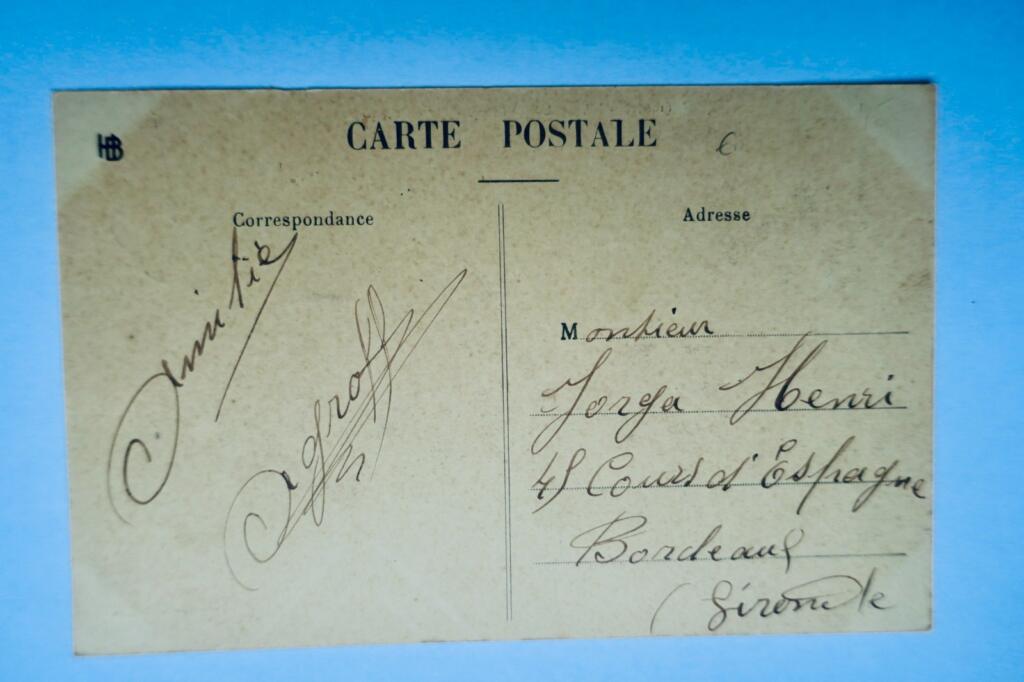 HB
CARTE POSTALE
6
Correspondance
Amitié
Adresse
Monsieur
Jorga Henri
45 Cours d'Espagne
Bordeaux
(Gironde